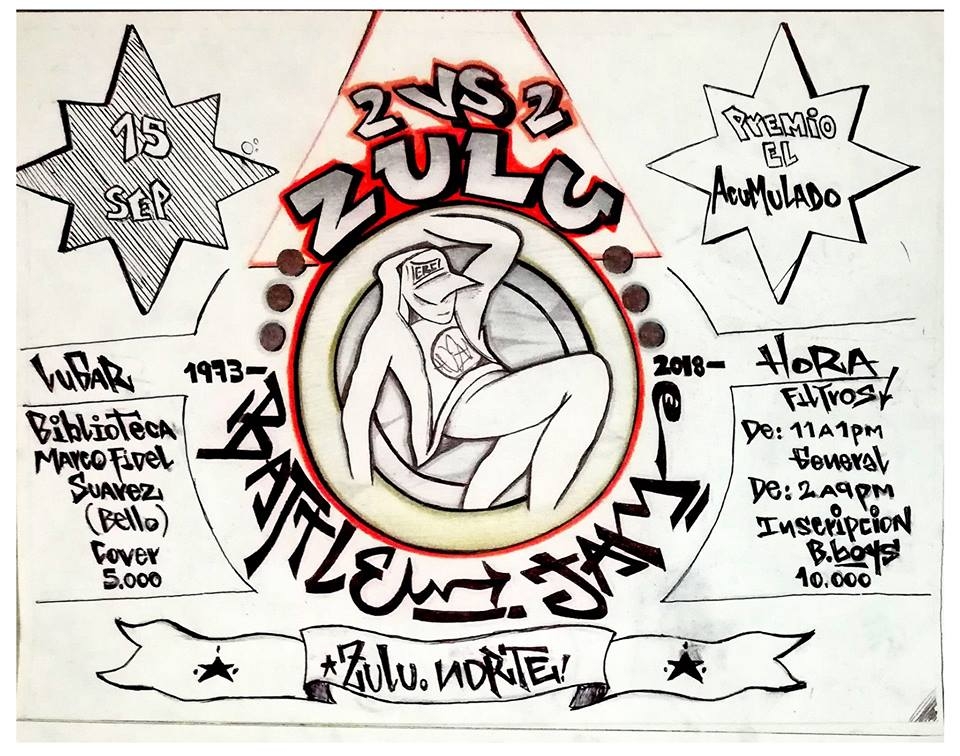 2 VS 2
ZULU
15
SEP
PREMIO
EL
ACUMULADO
1973-
2018-
BATTLE JAM
LUGAR
BIBLIOTECA
MARCO FIDEL
SUAREZ
(BELLO)
COVER
5.000
HORA
FILTROS
DE: 11 A 1 PM
GENERAL
DE: 2 A 9 PM
INSCRIPCION
B.boys
10.000
ZULU. NORTE!